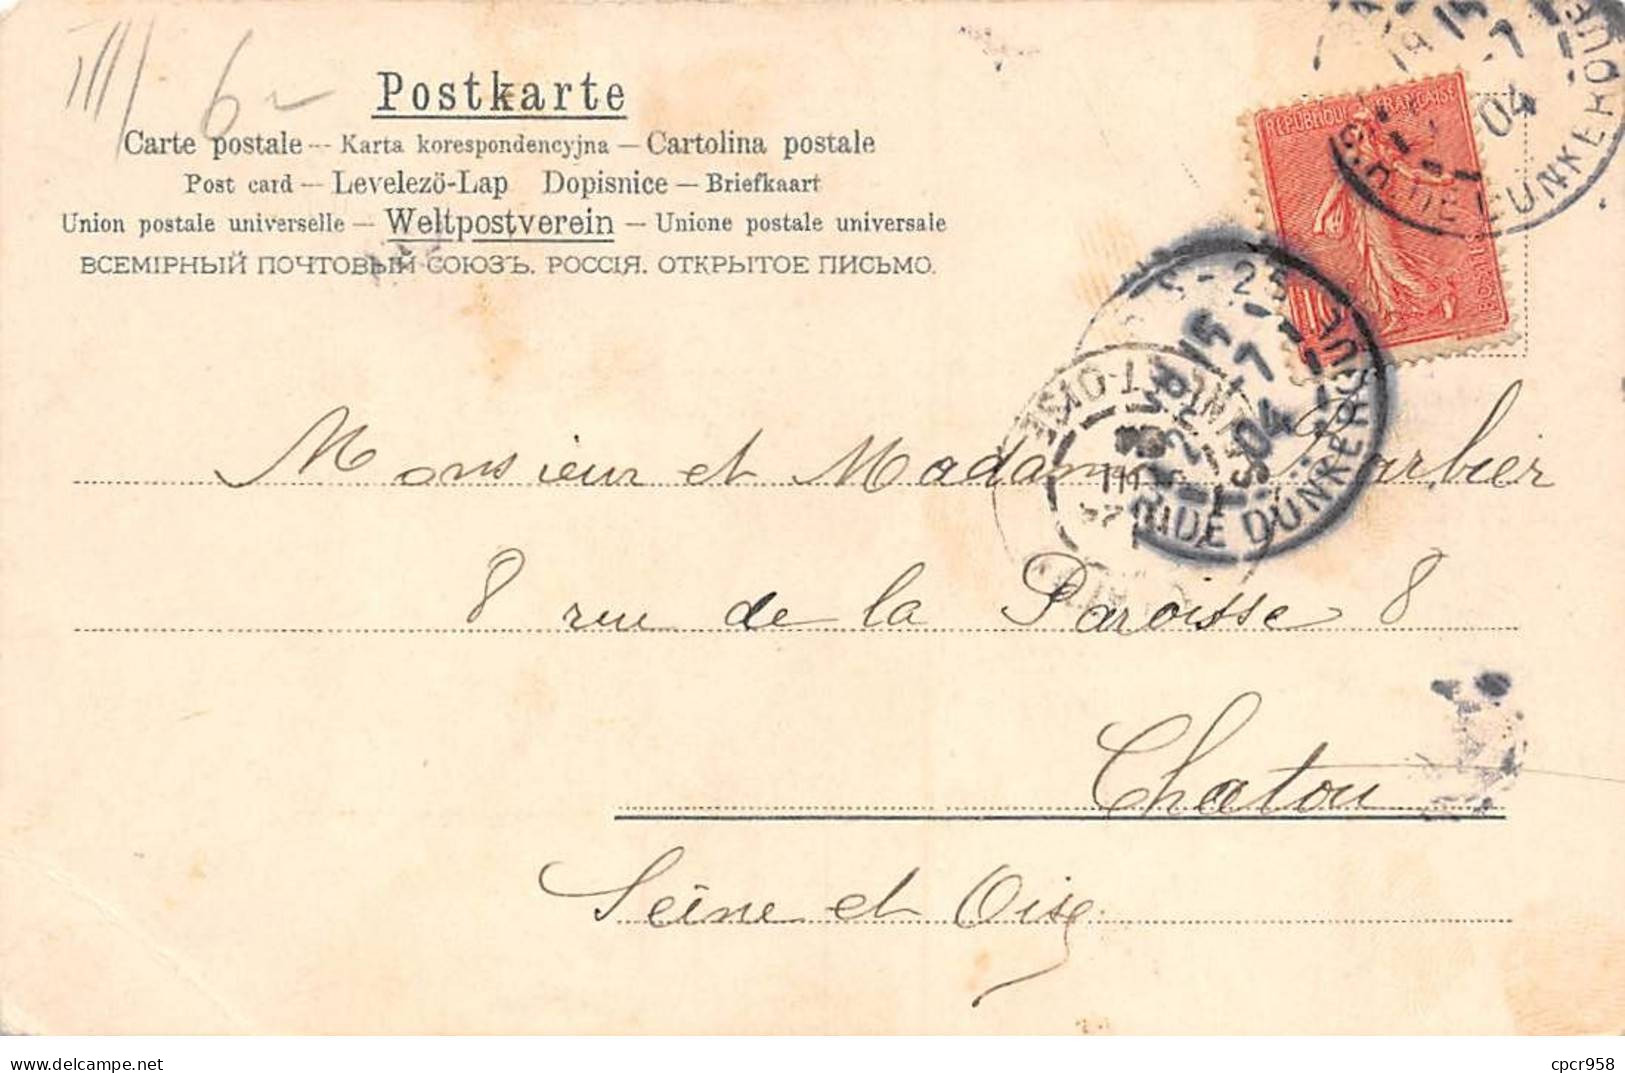 6
Postkarte
Carte postale -- Karta korespondencyjna — Cartolina postale
Post card -- Levelezö-Lap Dopisnice — Briefkaart
Union postale universelle — Weltpostverein — Unione postale universale
ВСЕМІРНЫЙ ПОЧТОВЫЙ СОЮЗЪ. РОССІЯ. ОТКРЫТОЕ ПИСЬМО.
REPUBLIQUE FRANÇAISE
10
-7
04
RUE DUNKERQUE
S-25
15
-7
04
R. DE DUNKERQUE
ET-OISE
Monsieur et Madame Barbier
8 rue de la Paroisse 8
Chatou
Seine et Oise
cpcr958